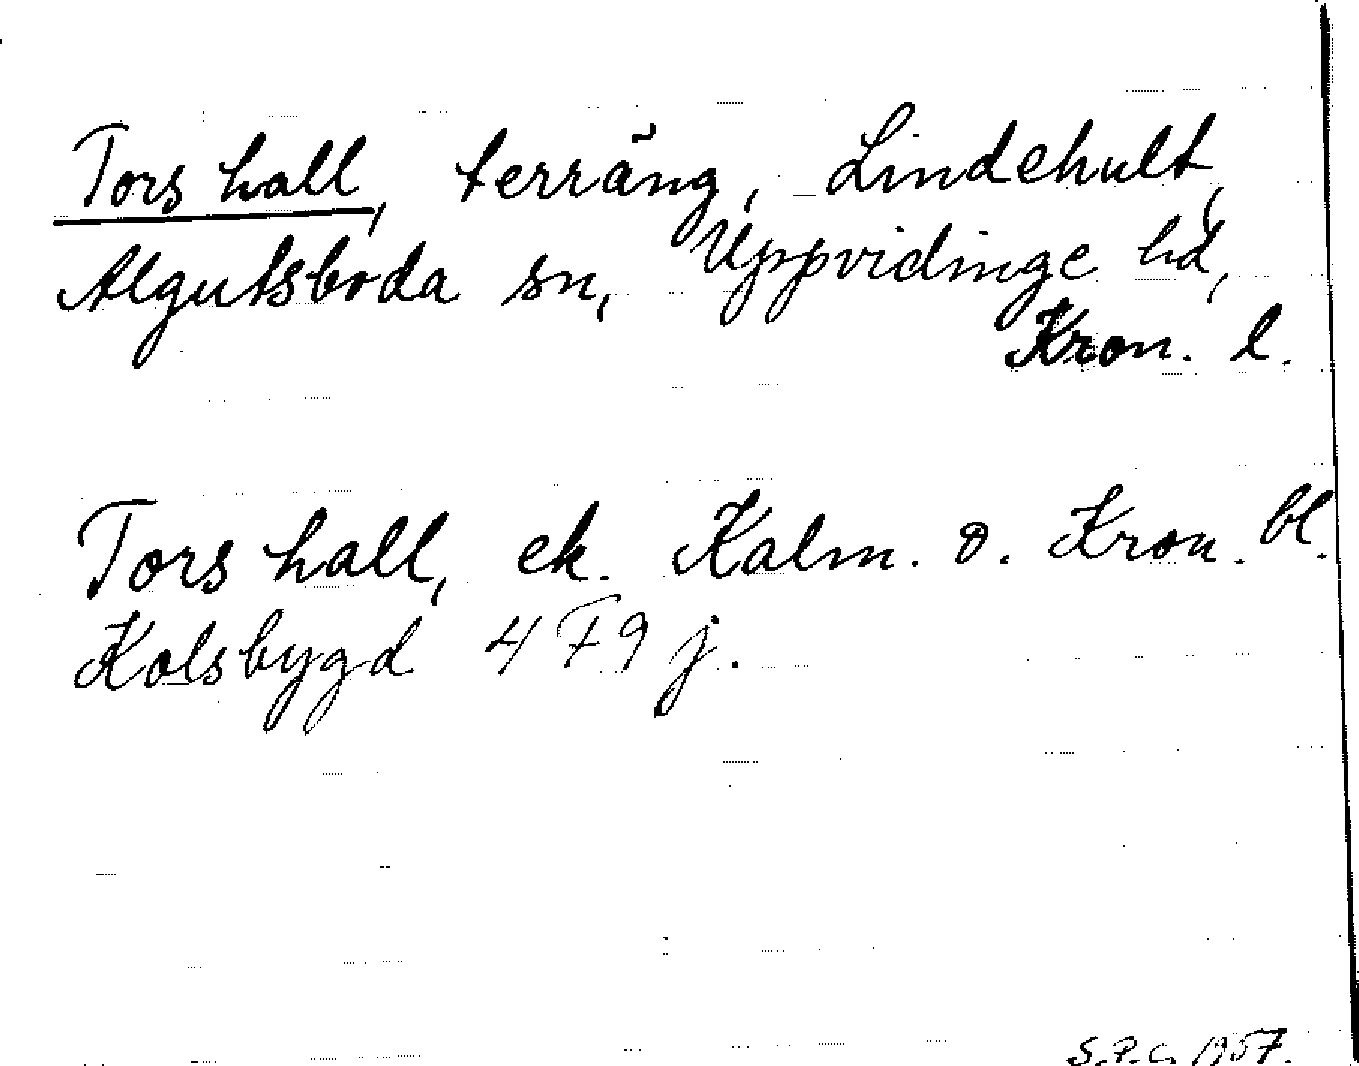 Tors hall, terräng, Lindehult,
Algutsboda sn, Uppvidinge hd,
Kron. l.
Tors hall, ek. Kalm. o. Kron. bl.
Kolsbygd 4F9j.
S.P.C. 1957.